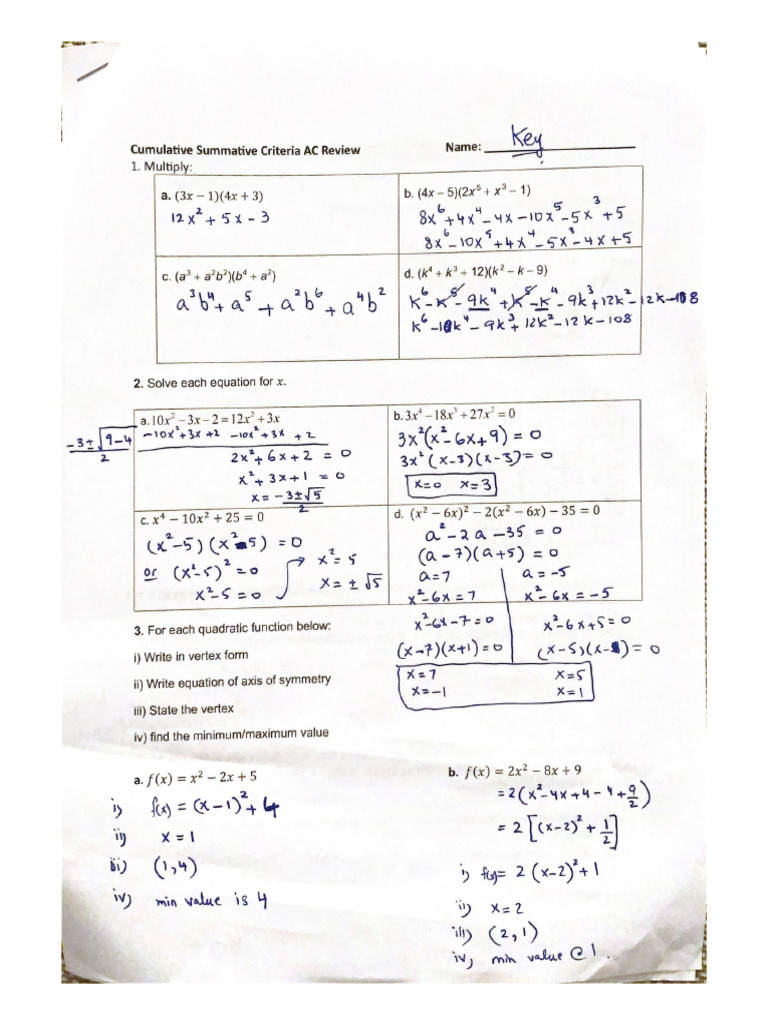 Cumulative Summative Criteria AC Review Name: Key
1. Multiply:
a. (3x – 1)(4x + 3)
12x² + 5x – 3
b. (4x – 5)(2x⁵ + x³ – 1)
8x⁶ + 4x⁴ – 4x – 10x⁵ – 5x³ + 5
8x⁶ – 10x⁵ + 4x⁴ – 5x³ – 4x + 5
c. (a³ + a²b²)(b⁴ + a²)
a³b⁴ + a⁵ + a²b⁶ + a⁴b²
d. (k⁴ + k³ + 12)(k² – k – 9)
k⁶ – k⁵ – 9k⁴ + k⁵ – k⁴ – 9k³ + 12k² – 12k – 108
k⁶ – 10k⁴ – 9k³ + 12k² – 12k – 108
2. Solve each equation for x.
a. 10x² – 3x – 2 = 12x² + 3x
–10x² + 3x + 2 –10x² + 3x + 2
2x² + 6x + 2 = 0
x² + 3x + 1 = 0
x = (–3 ± √5)/2
(–3 ± √(9–4))/2
b. 3x⁴ – 18x³ + 27x² = 0
3x²(x² – 6x + 9) = 0
3x²(x – 3)(x – 3) = 0
x = 0 x = 3
c. x⁴ – 10x² + 25 = 0
(x² – 5)(x² – 5) = 0
or (x² – 5)² = 0
x² – 5 = 0
→ x² = 5
x = ± √5
d. (x² – 6x)² – 2(x² – 6x) – 35 = 0
a² – 2a – 35 = 0
(a – 7)(a + 5) = 0
a = 7 a = –5
x² – 6x = 7 x² – 6x = –5
x² – 6x – 7 = 0 x² – 6x + 5 = 0
(x – 7)(x + 1) = 0 (x – 5)(x – 1) = 0
x = 7 x = 5
x = –1 x = 1
3. For each quadratic function below:
i) Write in vertex form
ii) Write equation of axis of symmetry
iii) State the vertex
iv) find the minimum/maximum value
a. f(x) = x² – 2x + 5
i) f(x) = (x – 1)² + 4
ii) x = 1
iii) (1, 4)
iv) min value is 4
b. f(x) = 2x² – 8x + 9
= 2(x² – 4x + 4 – 4 + 9/2)
= 2[(x – 2)² + 1/2]
i) f(x) = 2(x – 2)² + 1
ii) x = 2
iii) (2, 1)
iv) min value @ 1.